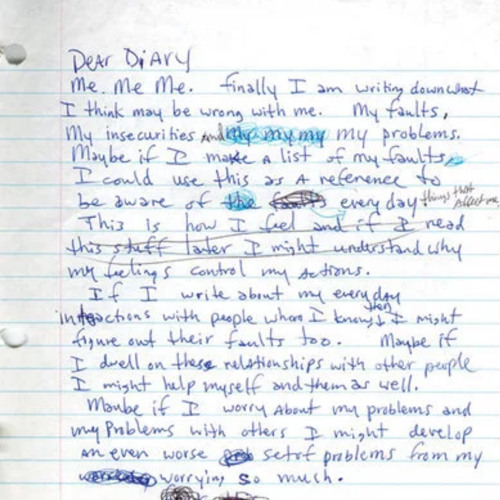 Dear Diary
Me. Me Me. Finally I am writing down what
I think may be wrong with me. My faults,
My insecurities and my my my my problems.
Maybe if I make a list of my faults,
I could use this as a reference to
be aware of the faults every day things that affect me
This is how I feel and if I read
this stuff later I might understand why
my feelings control my actions.
If I write about my everyday
interactions with people whom I know then I might
figure out their faults too. Maybe if
I dwell on these relationships with other people
I might help myself and them as well.
Maybe if I worry about my problems and
my Problems with others I might develop
an even worse set of problems from my
worrying so much.